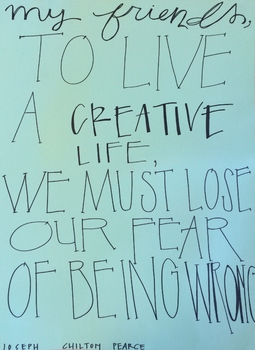 my friends,
TO LIVE
A CREATIVE
LIFE,
WE MUST LOSE
OUR FEAR
OF BEING WRONG
JOSEPH CHILTOM PEARCE